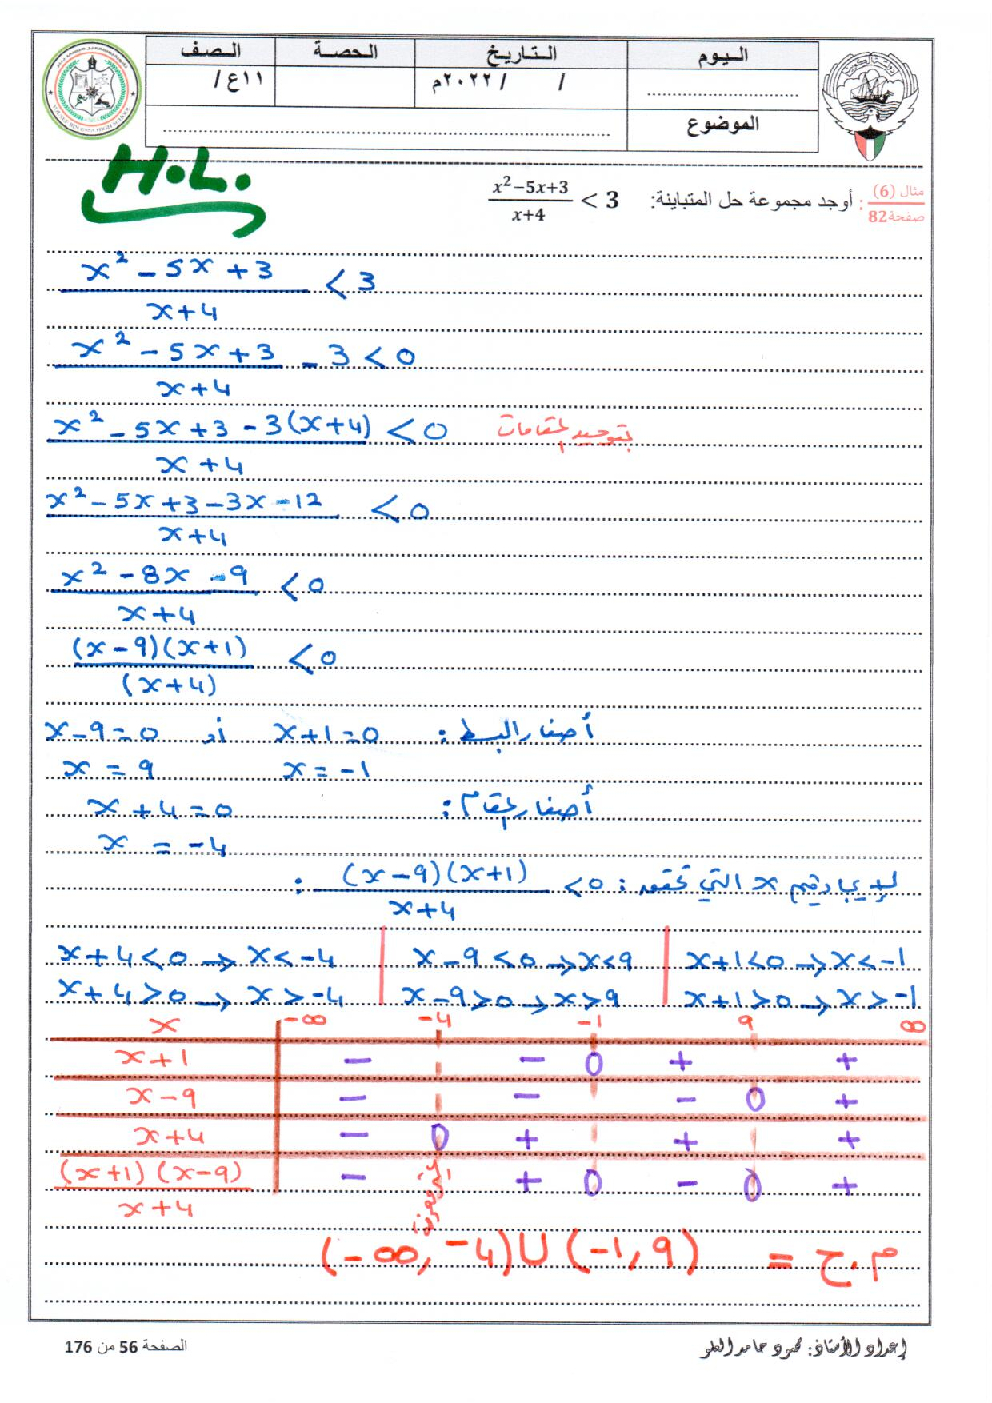 اليوم التاريخ الحصة الصف
/ / ٢٠٢٢م ١١ع /
الموضوع
H.L.
مثال (6) صفحة 82 : أوجد مجموعة حل المتباينة: (x²−5x+3)/(x+4) < 3
(x² - 5x + 3)/(x+4) < 3
(x² - 5x + 3)/(x+4) - 3 < 0
(x² - 5x + 3 - 3(x+4))/(x+4) < 0 بتوحيد المقامات
(x² - 5x + 3 - 3x - 12)/(x+4) < 0
(x² - 8x - 9)/(x+4) < 0
((x-9)(x+1))/((x+4)) < 0
أصفار البسط: x+1=0 أو x-9=0
x = 9 x = -1
أصفار المقام: x+4=0
x = -4
لإيجاد قيم x التي تحقق: ((x-9)(x+1))/(x+4) < 0 :
x+4<0 → x<-4 | x-9<0 → x<9 | x+1<0 → x<-1
x+4>0 → x>-4 | x-9>0 → x>9 | x+1>0 → x>-1
x -∞ -4 -1 9 ∞
x+1 - - 0 + +
x-9 - - - 0 +
x+4 - 0 + + +
((x+1)(x-9))/(x+4) - غير معرف + 0 - 0 +
م.ح = (-∞, -4) ∪ (-1, 9)
إعداد الأستاذ: محمود حامد الطو
الصفحة 56 من 176